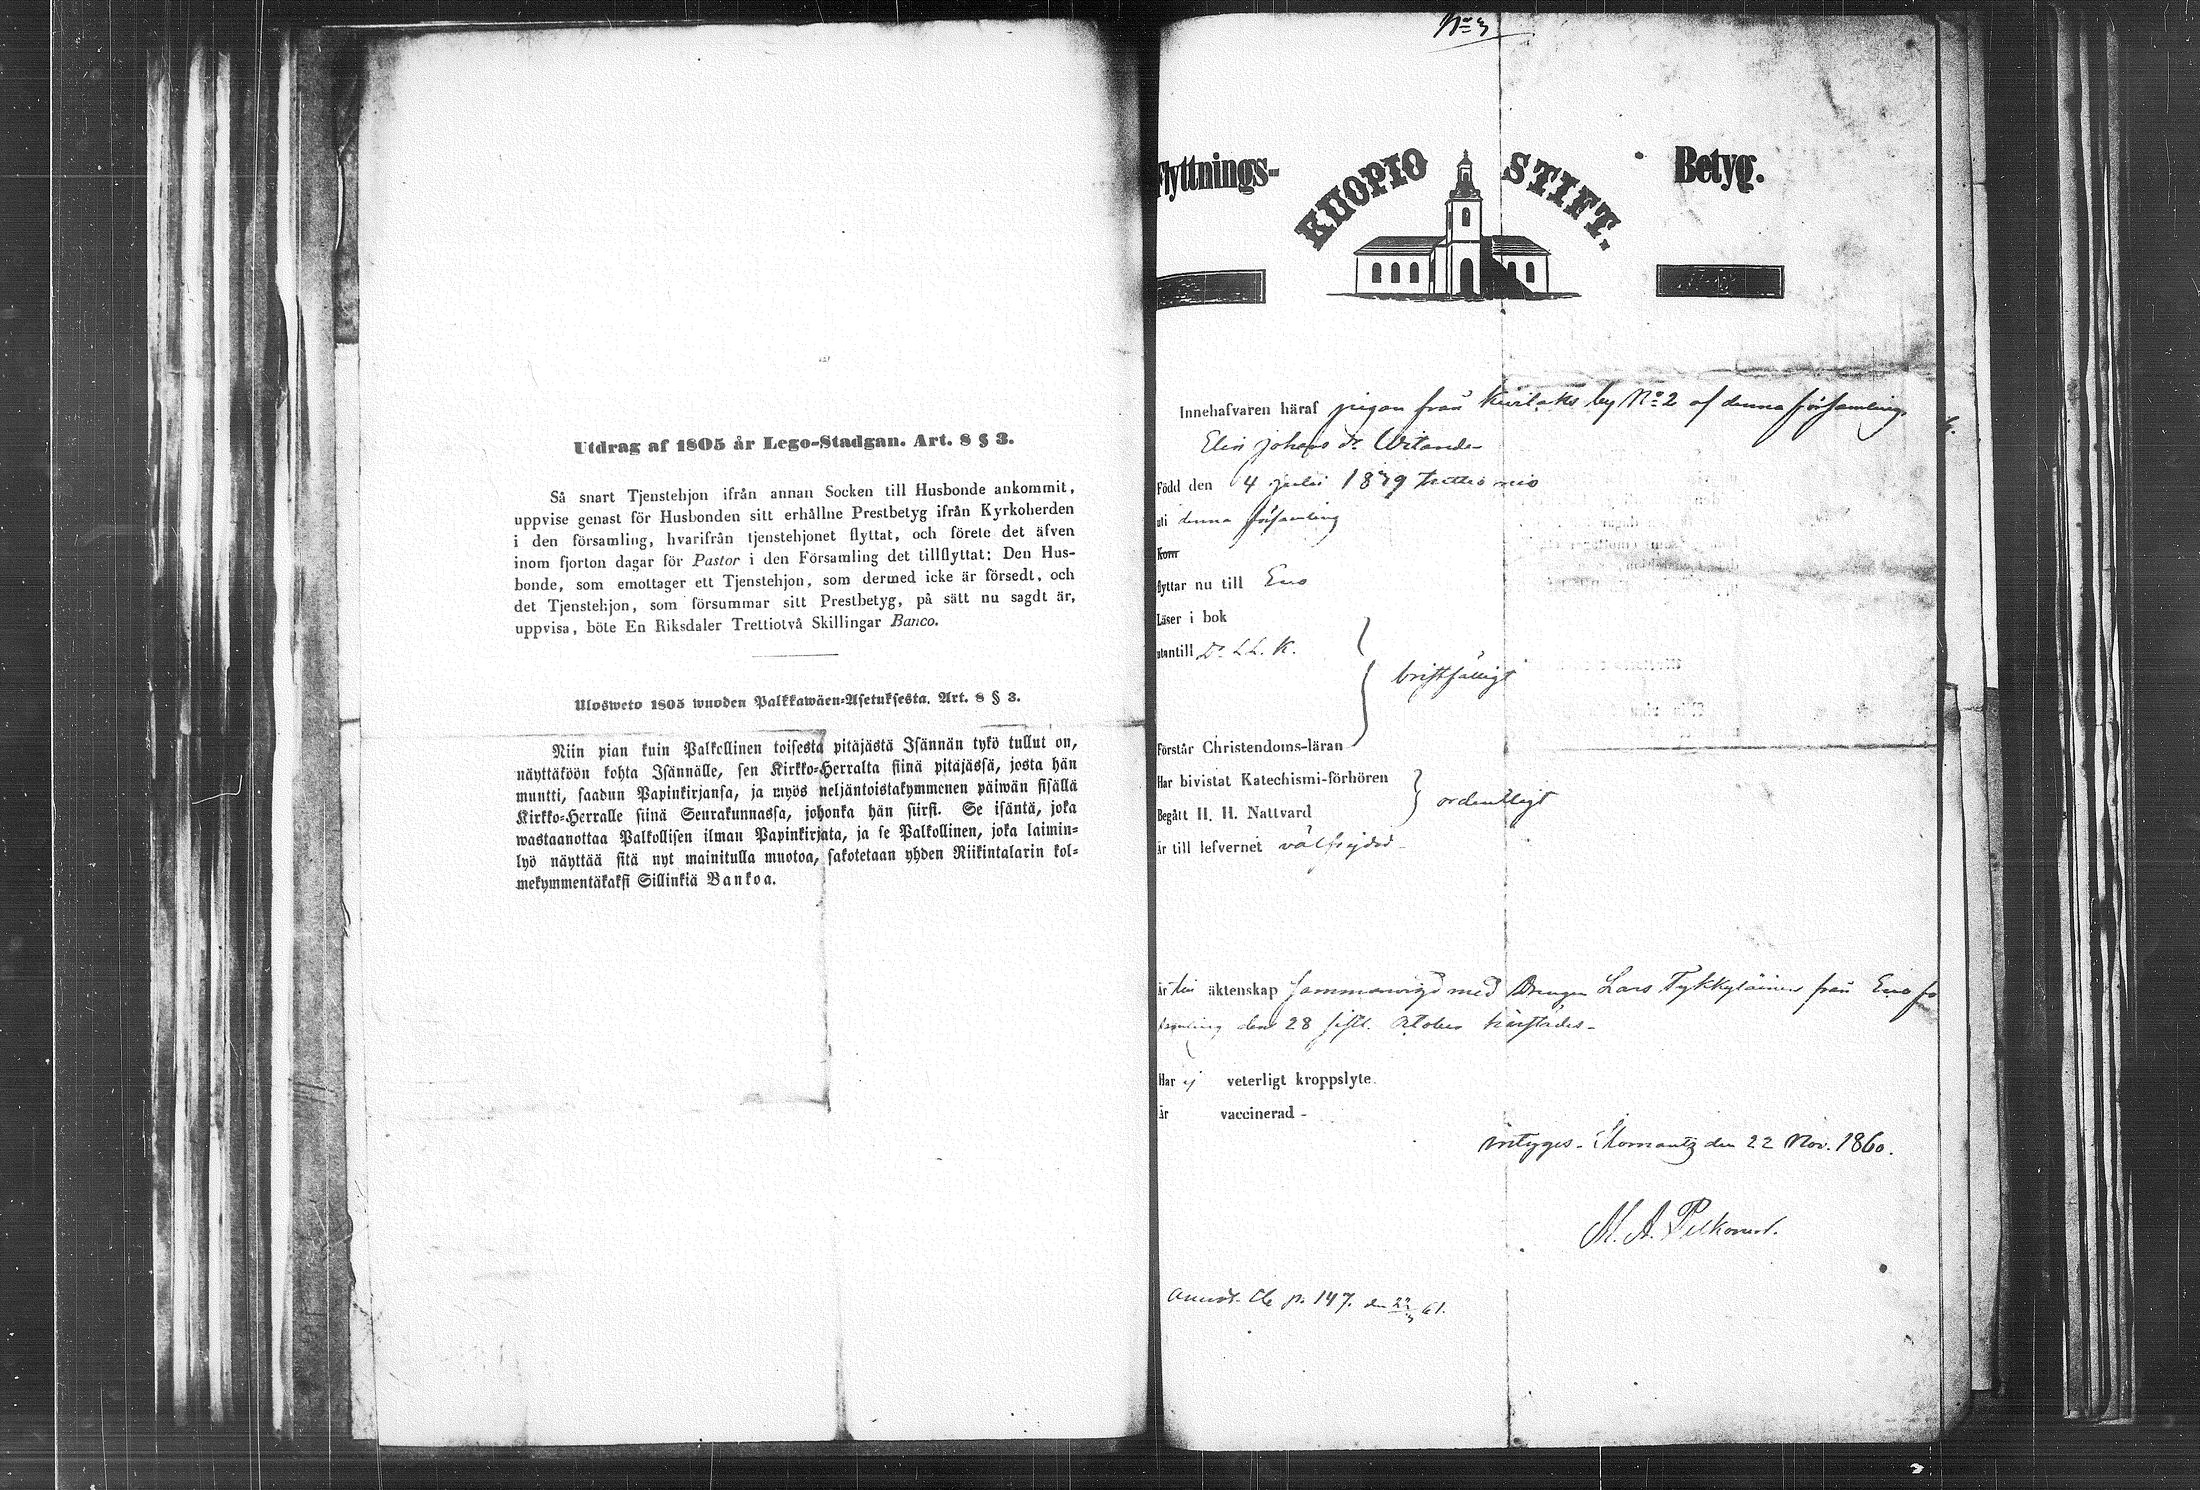 Utdrag af 1805 år Lego-Stadgan. Art. 8 § 3.
Så snart Tjenstehjon ifrån annan Socken till Husbonde ankommit,
uppvise genast för Husbonden sitt erhållne Prestbetyg ifrån Kyrkoherden
i den församling, hvarifrån tjenstehjonet flyttat, och förete det äfven
inom fjorton dagar för Pastor i den Församling det tillflyttat: Den Hus-
bonde, som emottager ett Tjenstehjon, som dermed icke är försedt, och
det Tjenstehjon, som försummar sitt Prestbetyg, på sätt nu sagdt är,
uppvisa, böte En Riksdaler Trettiotvå Skillingar Banco.
Ulosweto 1805 wuoden Palkkawäen-Asetuksesta. Art. 8 § 3.
Niin pian kuin Palkollinen toisesta pitäjästä Isännän tykö tullut on,
näyttäköön kohta Isännälle, sen Kirkko-Herralta siinä pitäjässä, josta hän
muutti, saadun Papinkirjansa, ja myös neljäntoistakymmenen päiwän sisällä
Kirkko-Herralle siinä Seurakunnassa, johonka hän siirsi. Se isäntä, joka
wastaanottaa Palkollisen ilman Papinkirjata, ja se Palkollinen, joka laimin-
lyö näyttää sitä nyt mainitulla muotoa, sakotetaan yhden Riikintalarin kol-
mekymmentäkaksi Sillinkiä Bankoa.
No 3
Flyttnings- KUOPIO STIFT. Betyg.
Innehafvaren häraf pigan från Kivilaks by No 2 af denna församling
Elin Johans dr
Född den 4 Julii 1839 trettio nio
uti denna församling
Kom
flyttar nu till Eno
Läser i bok
utantill D. L. L. K.
bristfälligt
Förstår Christendoms-läran
Har bivistat Katechismi-förhören
ordentligt
Begått H. H. Nattvard
Är till lefvernet välfrejdad
Är till äktenskap sammanvigd med Drengen Lars Tykkyläinen från Eno för
samling den 28 sistl. October härstädes
Har ej veterligt kroppslyte.
Är vaccinerad -
intygas. Ilomantz den 22 Nov. 1860.
M. A. Pelkonen.
p. 147. den 22/3 61.